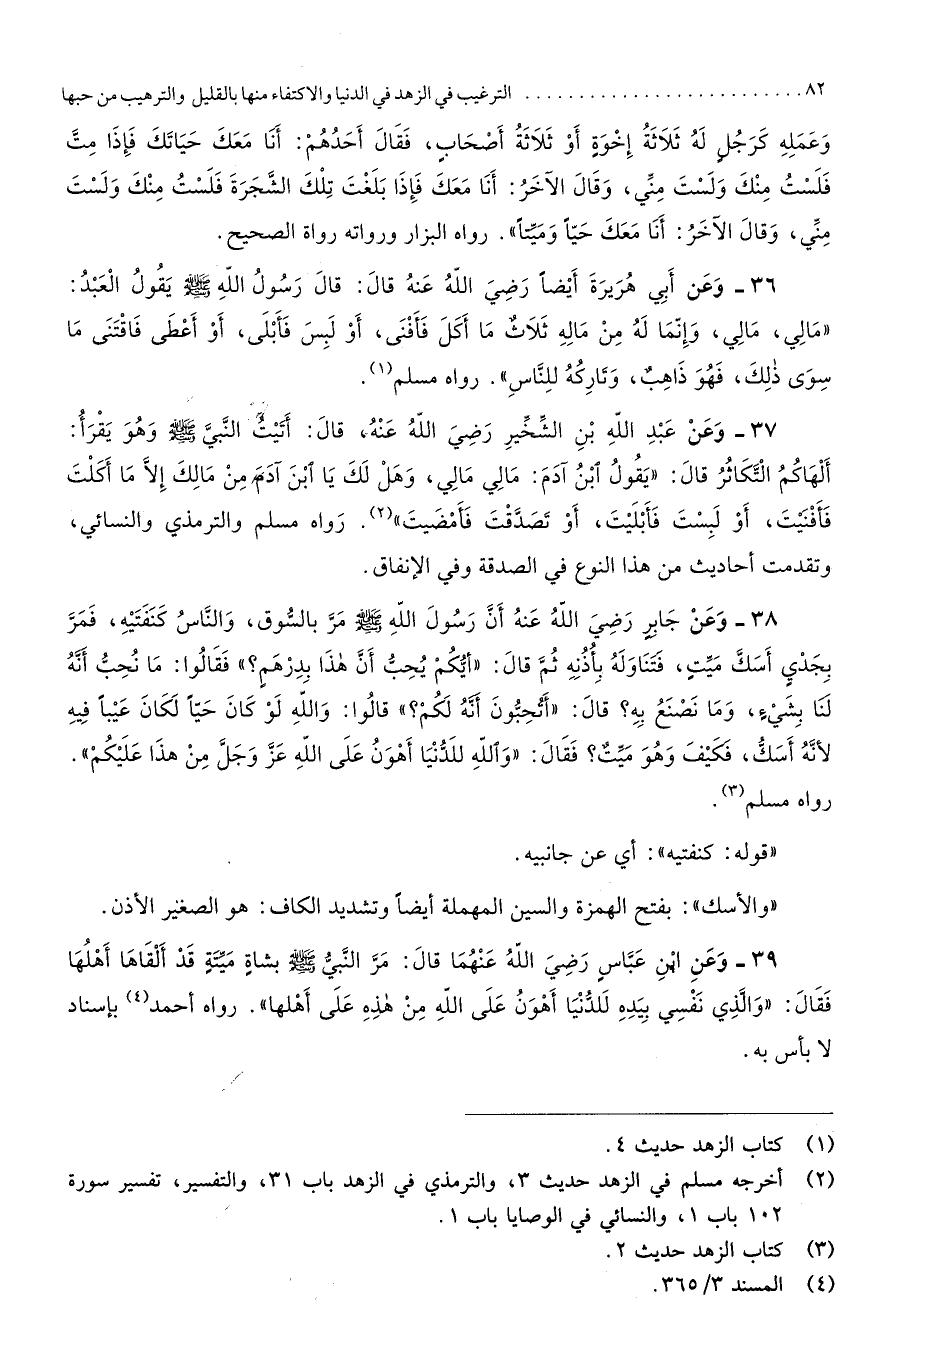 ٨٢ . . . . . . . . . . . . . . . . . . . . . . . . . . الترغيب في الزهد في الدنيا والاكتفاء منها بالقليل والترهيب من حبها
وَعَمَلِهِ كَرَجُلٍ لَهُ ثَلَاثَةُ إِخْوَةٍ أَوْ ثَلَاثَةُ أَصْحَابٍ، فَقَالَ أَحَدُهُمْ: أَنَا مَعَكَ حَيَاتَكَ فَإِذَا مِتَّ
فَلَسْتُ مِنْكَ وَلَسْتَ مِنِّي، وَقَالَ الآخَرُ: أَنَا مَعَكَ فَإِذَا بَلَغْتَ تِلْكَ الشَّجَرَةَ فَلَسْتُ مِنْكَ وَلَسْتَ
مِنِّي، وَقالَ الآخَرُ: أَنَا مَعَكَ حَيّاً وَمَيِّتاً». رواه البزار ورواته رواة الصحيح.
٣٦ ـ وَعَن أَبِي هُرَيرَةَ أَيْضاً رَضِيَ اللّهُ عَنهُ قالَ: قالَ رَسُولُ اللّهِ ﷺ يَقُولُ الْعَبْدُ:
«مَالِي، مَالِي، وَإِنَّمَا لَهُ مِنْ مَالِهِ ثَلَاثٌ مَا أَكَلَ فَأَفْنَى، أَوْ لَبِسَ فَأَبْلَى، أَوْ أَعْطَى فَاقْتَنَى مَا
سِوَى ذٰلِكَ، فَهُوَ ذَاهِبٌ، وَتَارِكُهُ لِلنَّاسِ». رواه مسلم(١).
٣٧ ـ وَعَنْ عَبْدِ اللّهِ بْنِ الشِّخِّيرِ رَضِيَ اللّهُ عَنْهُ، قالَ: أَتَيْتُ النَّبِيَّ ﷺ وَهُوَ يَقْرَأُ:
أَلْهَاكُمُ التَّكَاثُرُ قالَ: «يَقُولُ ٱبْنُ آدَمَ: مَالِي مَالِي، وَهَلْ لَكَ يَا ٱبْنَ آدَمَ مِنْ مَالِكَ إِلاَّ مَا أَكَلْتَ
فَأَفْنَيْتَ، أَوْ لَبِسْتَ فَأَبْلَيْتَ، أَوْ تَصَدَّقْتَ فَأَمْضَيتَ»(٢). رَواه مسلم والترمذي والنسائي،
وتقدمت أحاديث من هذا النوع في الصدقة وفي الإنفاق.
٣٨ ـ وَعَنْ جَابِرٍ رَضِيَ اللّهُ عَنهُ أَنَّ رَسُولَ اللّهِ ﷺ مَرَّ بالسُّوقِ، وَالنَّاسُ كَنَفَتَيْهِ، فَمَرَّ
بِجَدْيٍ أَسَكَّ مَيِّتٍ، فَتَنَاوَلَهُ بِأُذُنِهِ ثُمَّ قالَ: «أَيُّكُمْ يُحِبُّ أَنَّ هٰذَا بِدِرْهَمٍ؟» فَقَالُوا: مَا نُحِبُّ أَنَّهُ
لَنَا بِشَيْءٍ، وَمَا نَصْنَعُ بِهِ؟ قالَ: «أَتُحِبُّونَ أَنَّهُ لَكُمْ؟» قالُوا: وَاللّهِ لَوْ كَانَ حَيّاً لَكَانَ عَيْباً فِيهِ
لأَنَّهُ أَسَكُّ، فَكَيْفَ وَهُوَ مَيِّتٌ؟ فَقَالَ: «وَٱللّهِ لَلدُّنْيَا أَهْوَنُ عَلَى اللّهِ عَزَّ وَجَلَّ مِنْ هذَا عَلَيْكُمْ».
رواه مسلم(٣).
«قوله: كنفتيه»: أي عن جانبيه.
«والأسك»: بفتح الهمزة والسين المهملة أيضاً وتشديد الكاف: هو الصغير الأذن.
٣٩ ـ وَعَنِ ابْنِ عَبَّاسٍ رَضِيَ اللّهُ عَنْهُمَا قالَ: مَرَّ النَّبِيُّ ﷺ بشاةٍ مَيِّتَةٍ قَدْ أَلْقَاهَا أَهْلُهَا
فَقَالَ: «وَالَّذِي نَفْسِي بِيَدِهِ لَلدُّنْيَا أَهْوَنُ عَلَى اللّهِ مِنْ هٰذِهِ عَلَى أَهْلها». رواه أحمد(٤) بإسناد
لا بأس به.
(١) كتاب الزهد حديث ٤.
(٢) أخرجه مسلم في الزهد حديث ٣، والترمذي في الزهد باب ٣١، والتفسير، تفسير سورة
١٠٢ باب ١، والنسائي في الوصايا باب ١.
(٣) كتاب الزهد حديث ٢.
(٤) المسند ٣/ ٣٦٥.